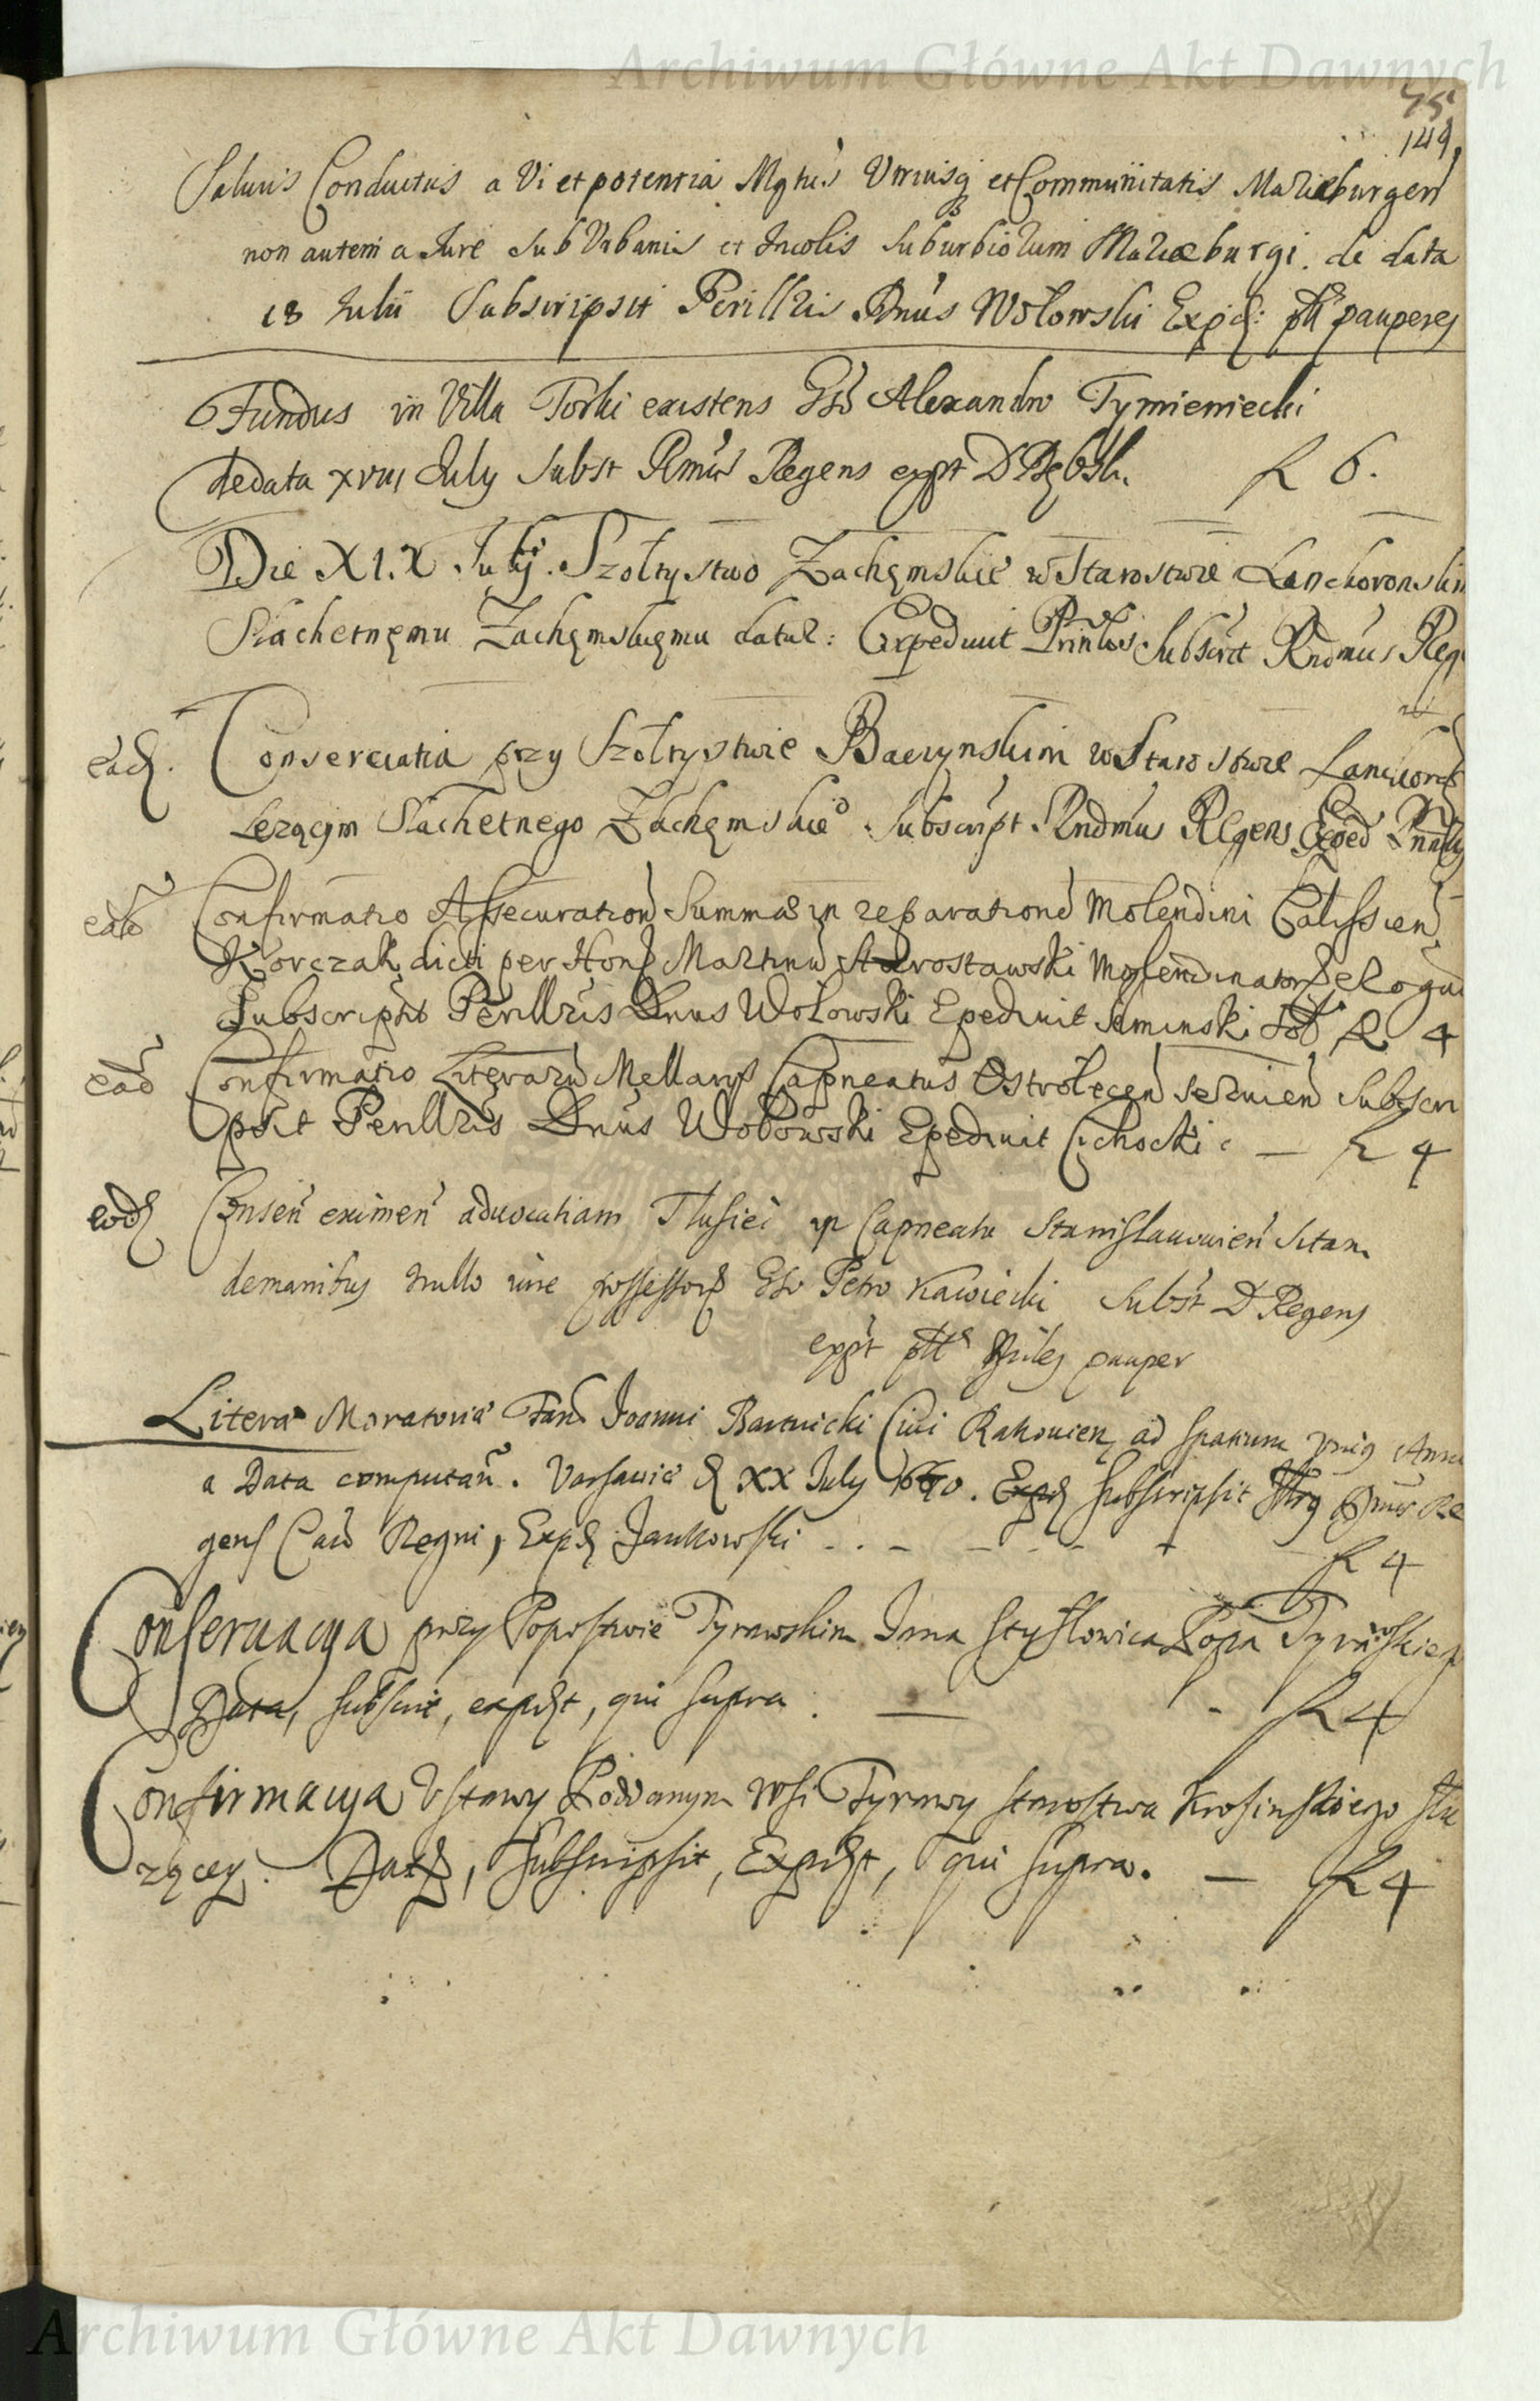 Archiwum Główne Akt Dawnych
75
149
Salvus Conductus a Vi et potentia Mgtus Vtriusq et Communitatis Mariaeburgen
non autem a Jure Sub Vrbanis et Incolis Suburbiorum Mariaeburgi. de data
18 Julii Subscripsit Perillris Dnus Wołowski Exped: ptt pauperes
Fundus in Villa Torki existens Gso Alexandro Tymieniecki
de data xviii July Subst Rmus Regens expt D R 6.
Die XIX Julij. Szołtystwo Zachęmskie w Starostwie Lanckoronskim
Slachetnęmu Zachęmskięmu datur: Expediuit Subscrit Rndmus Reg
ead. Conserwatia przy Szołtystwie Baczynskim w Starostwie
Lezącym Slachetnego Zachęmskieo Subscript Rndmus Regens Exped
ead Confirmatio Assecuration Summae in reparatione Molendini Calissien
Korczak dicti per Hons Martinu Molendinator
Subscripsit Perillris Dnus Wołowski Epediuit R 4
ead Confirmatio Literaru Mellarys Capneatus Ostrolęcen Subscri
psit Perillris Dnus Wołowski Epediuit Cichocki R 4
eod Consen eximen aduocatiam Tlusici in Capneatu Stanislauouien sitam
de manibus nullo iure possessor Gso Petro Kawiecki Subst D Regens
expt ptt Miles pauper
Litera Moratoria Fam Joanni Bartnicki Ciui Rakouien ad spatium vnius Anni
a Data computan. Varsauiae d XX July 1670. Subscripsit Dnus Re
gens Regni, Exped Jankowski R 4
Conseruacya przy Popostwie Tyrawskim Jana Popa
Data, subscrit, expdt, qui supra. R 4
Confirmacya Vstawy Poddanym Wsi Tyrawy starostwa Krosinskiego słu
zącey. Data, Subscripsit, Expdt, qui supra. R 4
Archiwum Główne Akt Dawnych